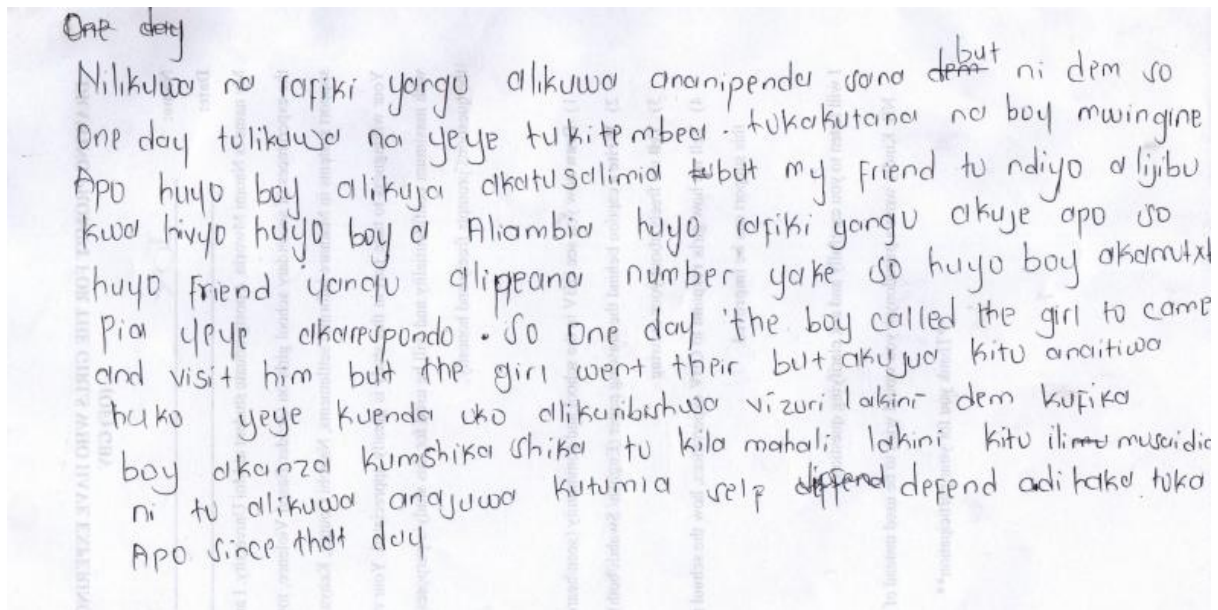 One day
Nilikuwa na rafiki yangu alikuwa ananipenda sana but ni dem so
One day tulikuwa na yeye tukitembea. tukakutana na boy mwingine
Apo huyo boy alikuja akatusalimia but my Friend tu ndiyo alijibu
kwa hivyo huyo boy a Aliambia huyo rafiki yangu akuje apo so
huyo Friend yangu alipeana number yake so huyo boy akamutxt
Pia yeye akarespondo. So One day the boy called the girl to come
and visit him but the girl went their but akujua kitu anaitiwa
huko yeye kuenda uko alikaribishwa vizuri lakini dem kufika
boy akanza kumshika shika tu kila mahali lakini kitu ili musaidia
ni tu alikuwa anajuwa kutumia self defend adi haka toka
Apo since that day